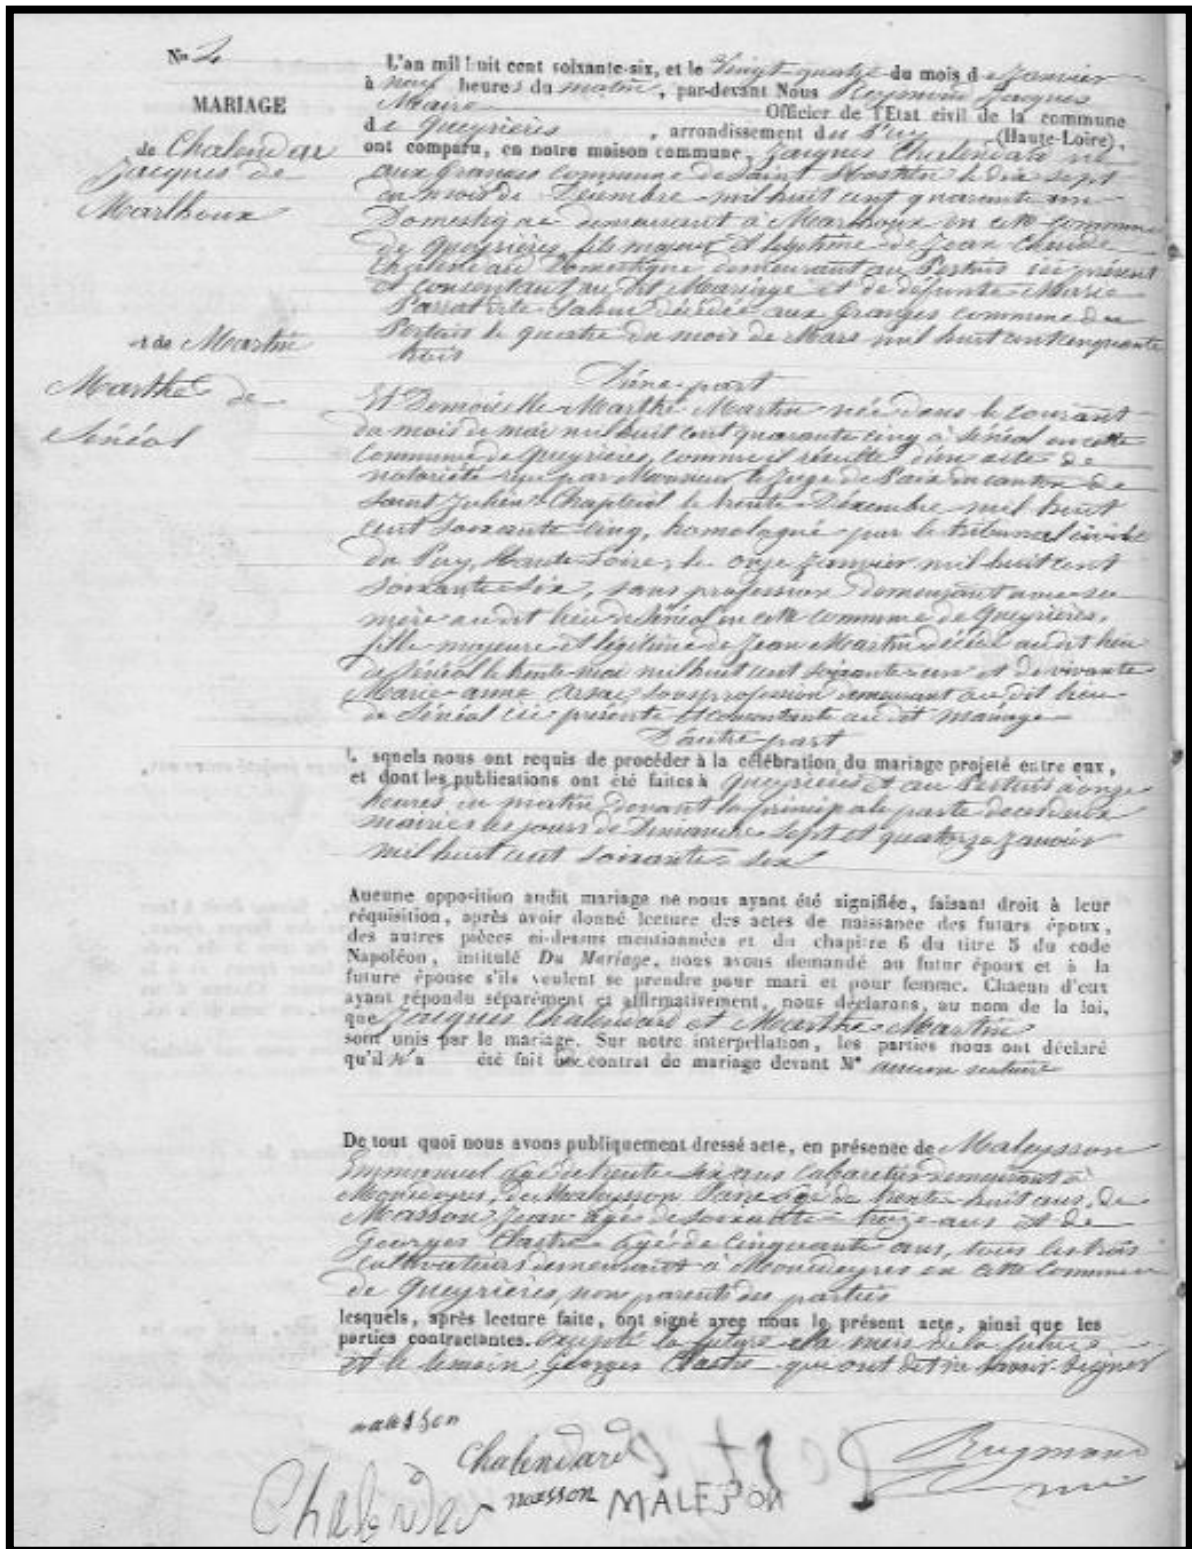 No 2
MARIAGE
de Chalendar
Jacques de
Marlhoux
et de Martin
Marthe de
Sénéol
L'an mil huit cent soixante-six, et le Vingt quatre du mois de Janvier
à neuf heures du matin, par-devant Nous Reymond Jacques
Maire Officier de l'Etat civil de la commune
de Queyrières, arrondissement du Puy (Haute-Loire),
ont comparu, en notre maison commune, Jacques Chalendard né
aux Granges commune de Saint Hostien le dix sept
du mois de Décembre mil huit cent quarante un
Domestique demeurant à Marlhoux en cette commune
de Queyrières, fils majeur et légitime de Jean Claude
Chalendard Domestique demeurant au Pertuis ici présent
et consentant au dit Mariage et de défunte Marie
décédée aux Granges commune du
Pertuis le quatre du mois de Mars mil huit cent cinquante
huit
D'une part
Et Demoiselle Marthe Martin née dans le courant
du mois de mai mil huit cent quarante cinq à Sénéol en cette
Commune de Queyrières, comme il résulte d'un acte de
notoriété reçu par Monsieur le Juge de Paix du canton de
Saint Julien Chapteuil le trente Décembre mil huit
cent soixante cinq, homologué par le tribunal civil
du Puy, Haute-Loire, le onze Janvier mil huit cent
soixante six, sans profession demeurant avec sa
mère au dit lieu de Sénéol en cette commune de Queyrières,
fille majeure et légitime de Jean Martin décédé au dit lieu
de Sénéol le trente mai mil huit cent soixante un et de vivante
Marie-anne Arsac sans profession demeurant au dit lieu
de Sénéol ici présente et consentante au dit mariage
D'autre part
L squels nous ont requis de procéder à la célébration du mariage projeté entre eux,
et dont les publications ont été faites à Queyrières et au Pertuis à onze
heures du matin devant la principale porte de ces deux
mairies les jours de Dimanche sept et quatorze Janvier
mil huit cent soixante six
Aucune opposition audit mariage ne nous ayant été signifiée, faisant droit à leur
réquisition, après avoir donné lecture des actes de naissance des futurs époux,
des autres pièces ci-dessus mentionnées et du chapitre 6 du titre 5 du code
Napoléon, intitulé Du Mariage, nous avons demandé au futur époux et à la
future épouse s'ils veulent se prendre pour mari et pour femme. Chacun d'eux
ayant répondu séparément et affirmativement, nous déclarons, au nom de la loi,
que Jacques Chalendard et Marthe Martin
sont unis par le mariage. Sur notre interpellation, les parties nous ont déclaré
qu'il n'a été fait de contrat de mariage devant Me aucun notaire
De tout quoi nous avons publiquement dressé acte, en présence de Maleysson
Emmanuel âgé de trente six ans cabaretier demeurant à
de Maleysson âgé de trente-huit ans, de
Masson Jean âgé de soixante-treize ans et de
Georges Chastre âgé de cinquante ans, tous les trois
cultivateurs demeurant à Monedeyres en cette commune
de Queyrières, non parents des parties
lesquels, après lecture faite, ont signé avec nous le présent acte, ainsi que les
parties contractantes. excepté la future et la mère de la future
et le témoin Georges Chastre qui ont dit ne savoir signer
malesson
Chalendard
Chalender
masson
MALESON
Reymond